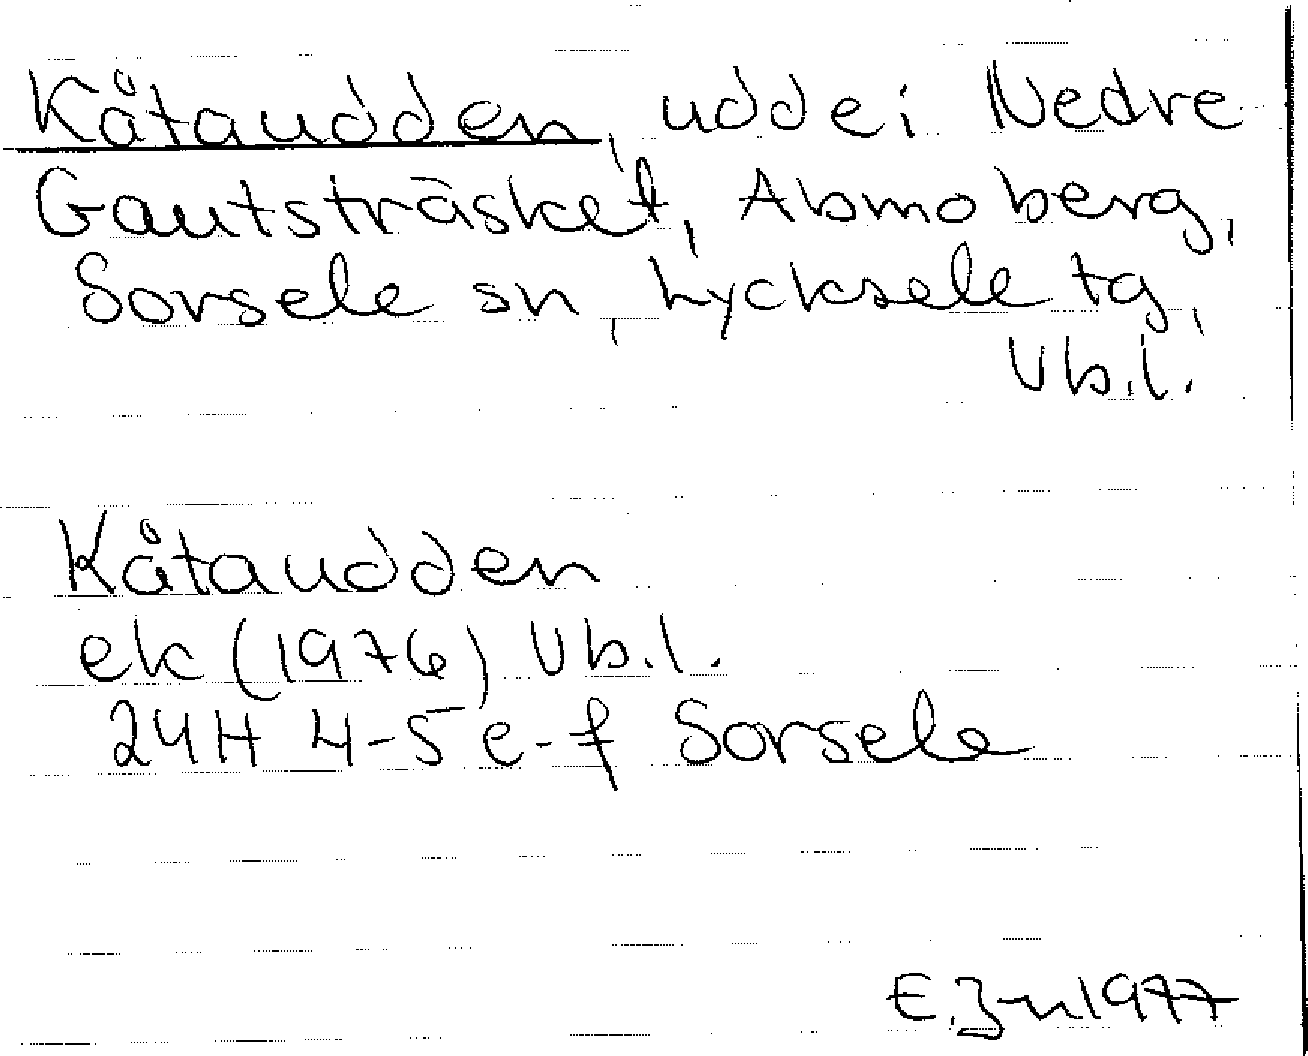 Kåtaudden, udde i Nedre
Gautsträsket, Abmoberg,
Sorsele sn, Lycksele tg,
Vb.l.
Kåtaudden
ek (1976) Vb.l.
24H 4-5 e-f Sorsele
1977